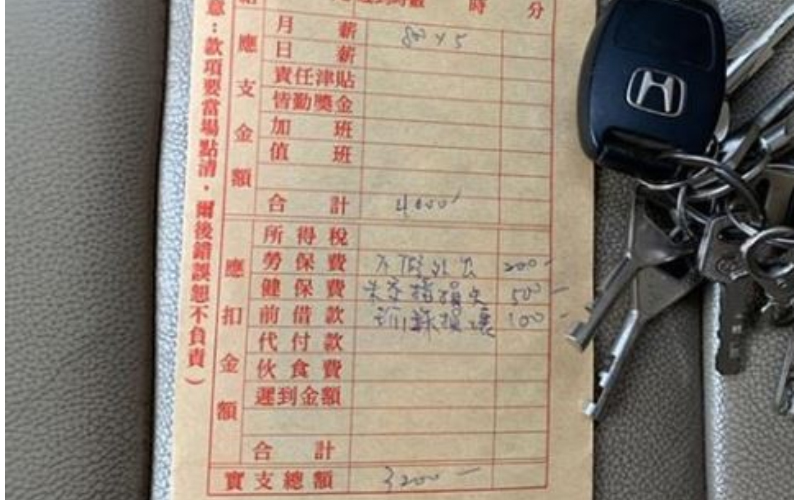 時 分
意：款項要當場點清，爾後錯誤恕不負責）
應支金額
月薪
日薪
責任津貼
皆勤獎金
加班
值班
合計 4000
應扣金額
所得稅
勞保費 200-
健保費 損失 500-
前借款 損壞 100-
代付款
伙食費
遲到金額
合計
實支總額 3200-